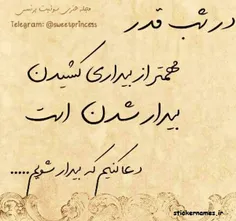 مجله هنری سوئیت پرنسس
Telegram: @sweetprincets
در شب قدر
مهمتر از بیداری کشیدن
بیدار شدن است
دعا کنیم که بیدار شویم.....
stickernames.ir